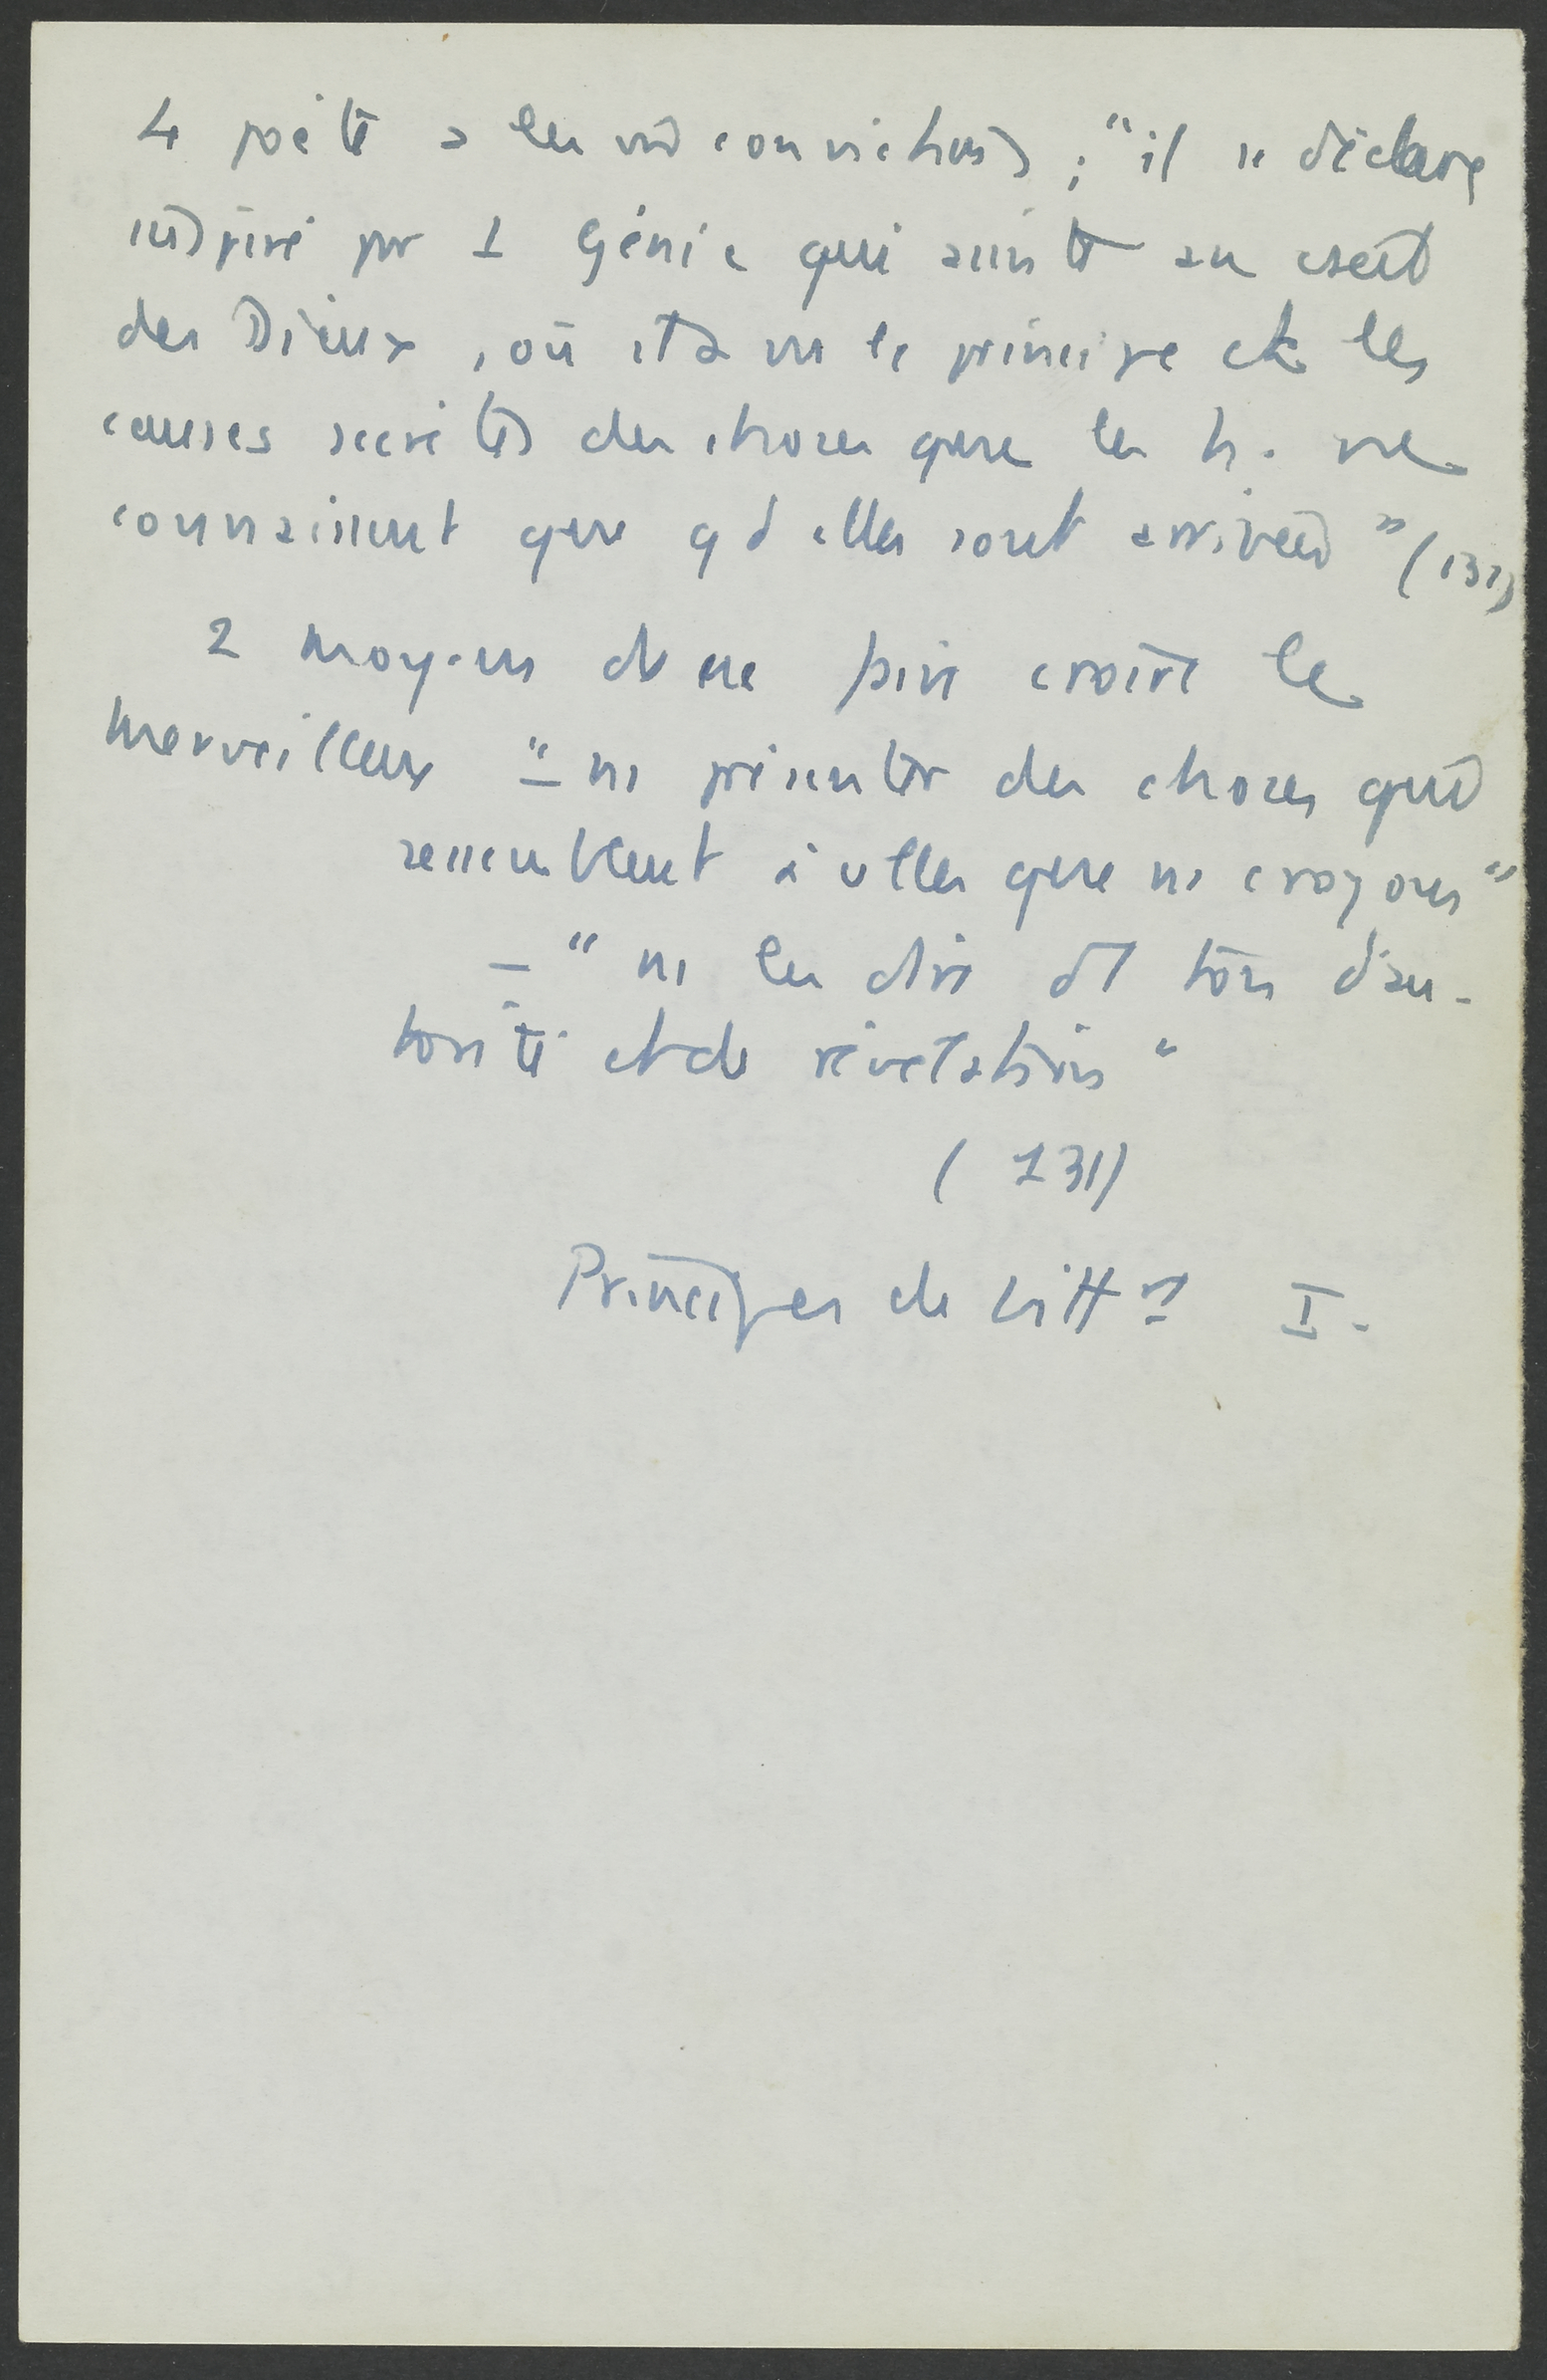 Le poète a les mê convictions ; "il se déclare
inspiré par 1 Génie qui assiste au conseil
des Dieux, où il a vu le principe et les
causes secrètes des choses que les h. ne
connaissent que qd elles sont arrivées" (131)
2 moyens de ne faire croire le
merveilleux "– ns présenter des choses qui
ressemblent à celles que ns croyons"
– "ns les dire d1 ton d'au-
torité et de révélation"
(131)
Principes de Littre I.